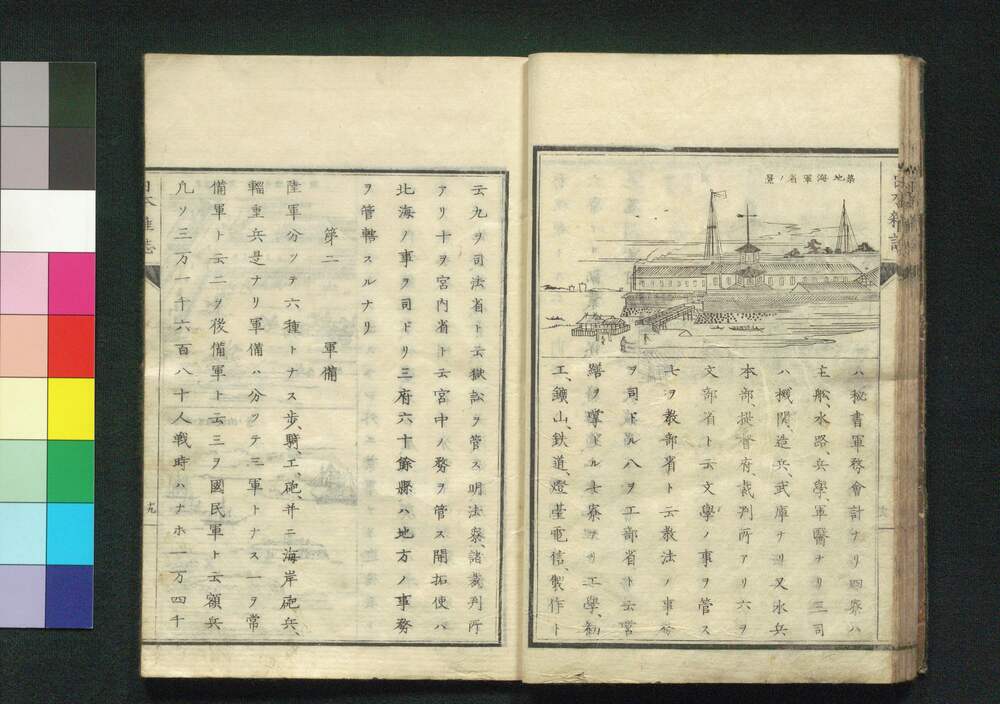 築地海軍省ノ景
ハ秘書軍務會計ナリ四寮ハ
主船、水路、兵學、軍醫ナリ三司
ハ機関、造兵、武庫ナリ又水兵
本部、提督府、裁判所アリ六ヲ
文部省ト云文學ノ事ヲ管ス
七ヲ教部省ト云教法ノ事務
ヲ司ドル八ヲ工部省ト云営
繕ヲ掌ドル七寮アリ工學、勧
工、鑛山、鉄道、燈臺電信、製作ト
云九ヲ司法省ト云獄訟ヲ管ス明法寮諸裁判所
アリ十ヲ宮内省ト云宮中ノ務ヲ管ス開拓使ハ
北海ノ事ヲ司ドリ三府六十餘縣ハ地方ノ事務
ヲ管轄スルナリ
第二 軍備
陸軍分ツテ六種トナス歩、騎、工、砲、并ニ海岸砲兵、
輜重兵是ナリ軍備ハ分ツテ三軍トナス一ヲ常
備軍ト云二ヲ後備軍ト云三ヲ國民軍ト云額兵
凡ソ三万一千六百八十人戦時ハナホ一万四千
日本雑誌
十九